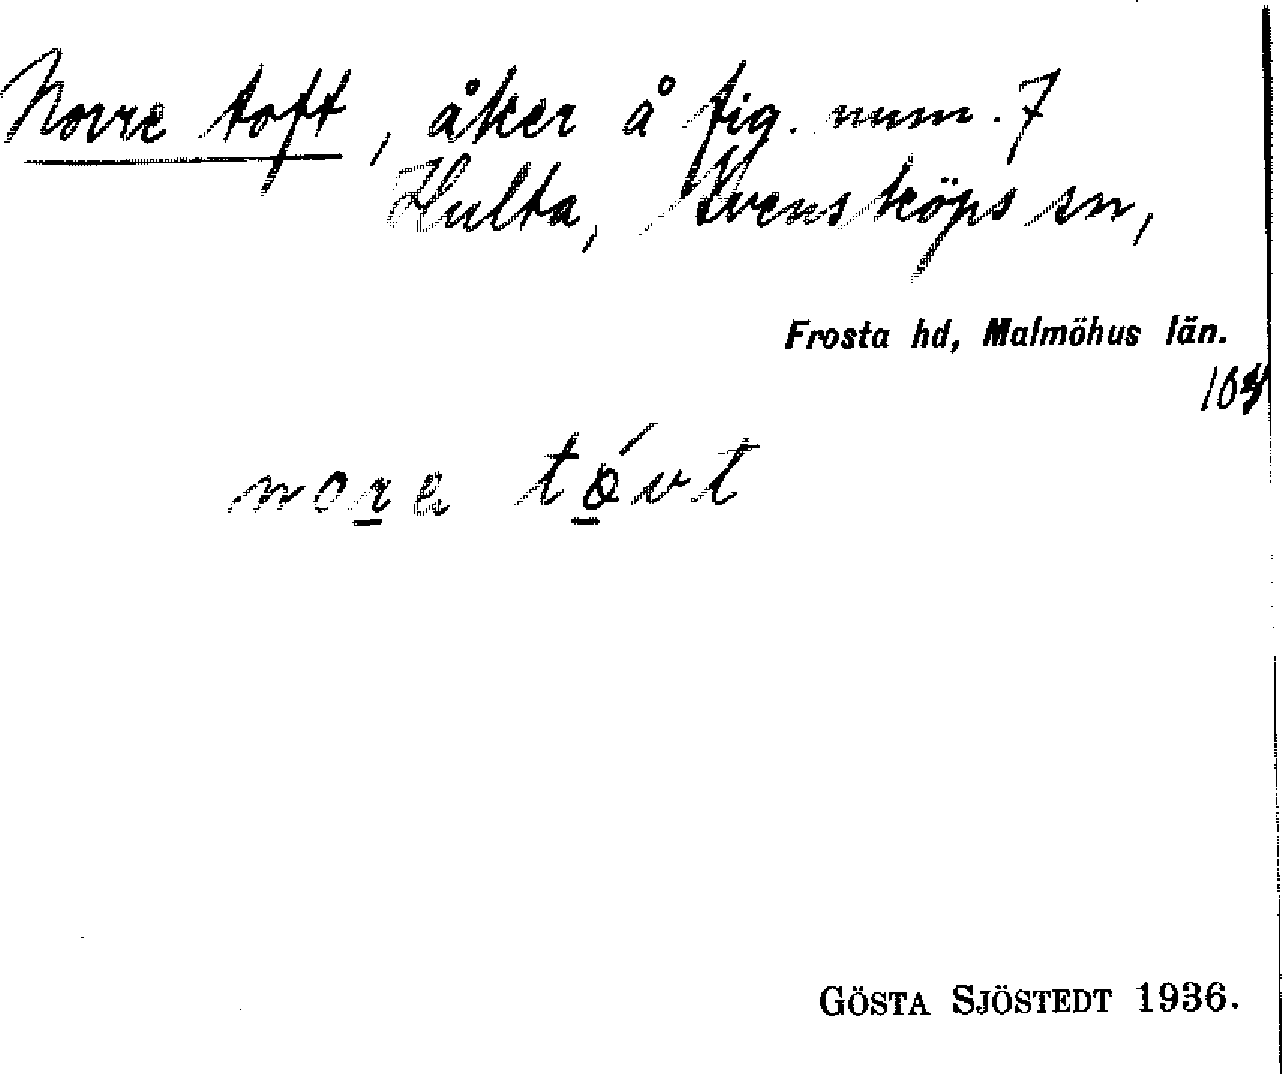 Norre toft, åker å fig. num. 7
Hulta, Svensköps sn,
Frosta hd, Malmöhus län.
nore tóvt
GÖSTA SJÖSTEDT 1936.